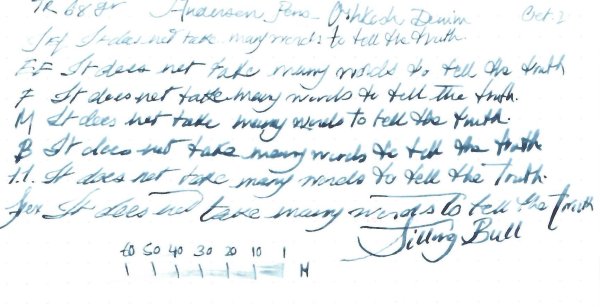 TR 68 gr Andersen Pens Oshkosh Denim Oct. 2
Inf It does not take many words to tell the truth.
EF It does not take many words to tell the truth
F It does not take many words to tell the truth.
M It does not take many words to tell the truth.
B It does not take many words to tell the truth
1.1. It does not take many words to tell the Truth.
Flex It does not take many words to tell the Truth
Sitting Bull
60 50 40 30 20 10 1
M